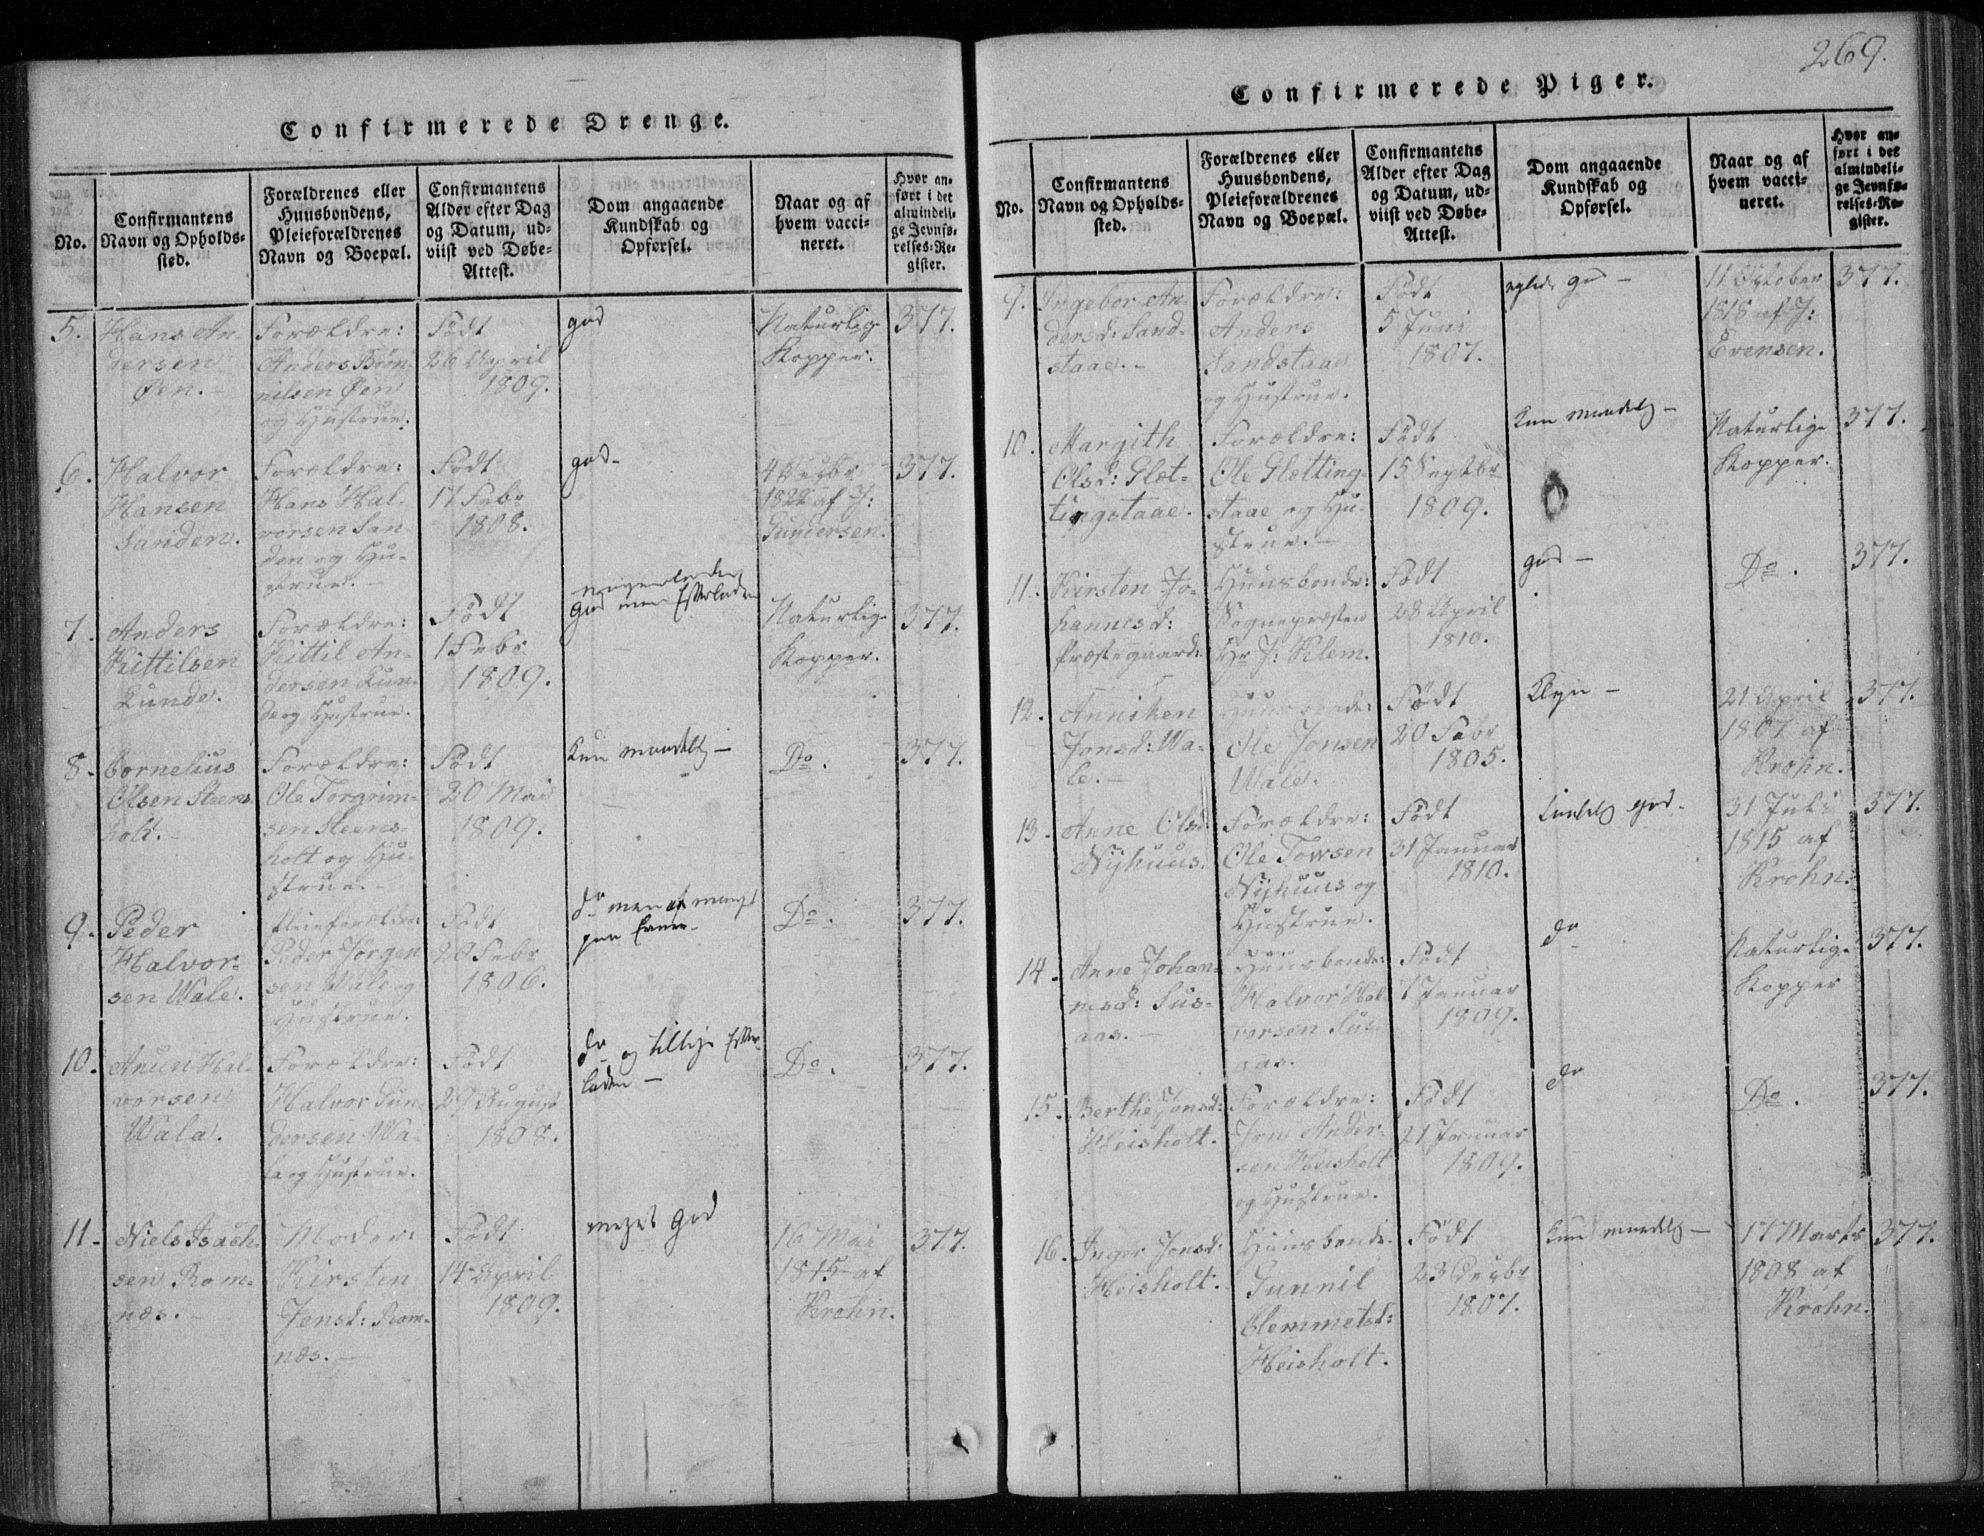 Confirmerede Drenge.
No.
Confirmantens
Navn og Opholds-
sted.
Forældrenes eller
Huusbondens,
Pleieforældrenes
Navn og Boepæl.
Confirmantens
Alder efter Dag
og Datum, ud-
viist ved Døbe-
Attest.
Dom angaaende
Kundskab og
Opførsel.
Naar og af
hvem vacci-
neret.
Hvor an-
ført i det
almindeli-
ge Jevnfø-
relses-Re-
gister.
5.
Hans An-
dersen
Øen.
Forældre:
Anders Brøn-
nilsen Øen
og Hustrue.
Født
26 April
1809.
god
Naturlige
Kopper.
377.
6.
Halvor
Hansen
Sanden.
Forældre:
Hans Hal-
vorsen San-
den og Hu-
strue.
Født
17 Febr
1808.
god
1822 af J:
Gundersen.
377.
7.
Anders
Kittilsen
Lunde.
Forældre:
Kittil An-
dersen Lun-
de og Hustrue.
Født
1 Febr
1809.
nogenledes
god men Efterladen
Naturlige
Kopper.
377.
8.
Cornelius
Olsen Steens-
holt.
Forældre:
Ole Torgrim-
sen Steens-
holt og Hu-
strue.
Født
20 Mai
1809.
Kun maadelig
Do.
377.
9.
Peder
Halvor-
sen Wale.
Pleieforældre:
Peder Jørgen-
sen Wale og
Hustrue.
Født
20 Febr
1806.
do men af mangel
paa Evner
Do.
377.
10.
Anun Hal-
vorsen
Wala.
Forældre:
Halvor Gun-
dersen Wa-
la og Hustrue.
Født
29 August
1808.
do og tillige Efter-
laden
Do.
377.
11.
Niels Isach-
sen Rom-
næs.
Moder:
Kirsten
Jensd: Rom-
næs.
Født
14 April
1809.
meget god
16 Mai
1815 af
Krohn.
377.
269.
Confirmerede Piger.
No.
Confirmantens
Navn og Opholds-
sted.
Forældrenes eller
Huusbondens,
Pleieforældrenes
Navn og Boepæl.
Confirmantens
Alder efter Dag
og Datum, ud-
viist ved Døbe-
Attest.
Dom angaaende
Kundskab og
Opførsel.
Naar og af
hvem vacci-
neret.
Hvor an-
ført i det
almindeli-
ge Jevnfø-
relses-Re-
gister.
9.
Ingebor An-
dersd: Sand-
staae.
Forældre:
Anders
Sandstaae
og Hustrue.
Født
5 Juni
1807.
11 October
1818 af J:
Evensen.
377.
10.
Margith
Olsd: Glet-
tingstaae.
Forældre:
Ole Gletting-
staae og Hu-
strue.
Født
15 Septbr
1809.
Kun maadelig
Naturlige
Kopper.
377.
11.
Kirsten Jo-
hannesd:
Præstegaard:
Huusbonde:
Sognepræsten
Hr J: Klem.
Født
28 April
1810.
god
Do.
377.
12.
Anniken
Jonsd: Wa-
le.
Huusbonde:
Ole Jonsen
Wale.
Født
20 Febr
1805.
21 April
1807 af
Krohn.
377.
13.
Anne Olsd:
Nyhuus.
Forældre:
Ole Towsen
Nyhuus og
Hustrue.
Født
31 Januar
1810.
temlig god
31 Juli
1815 af
Krohn.
377.
14.
Anne Johan-
nesd: Sus-
aas.
Huusbonde:
Halvor Hal-
vorsen Sus-
aas.
Født
1 Januar
1809.
do
Naturlige
Kopper
377.
15.
Berthe Jonsd:
Heisholt.
Forældre:
Jon Ander-
sen Heisholt
og Hustrue.
Født
21 Januar
1809.
do
Do.
377.
16.
Inger Jonsd:
Heisholt.
Huusbonde:
Gunnil
Clemmetsd:
Heisholt.
Født
23 Decbr
1807.
Kun maadelig
17 Marts
1808 af
Krohn.
377.